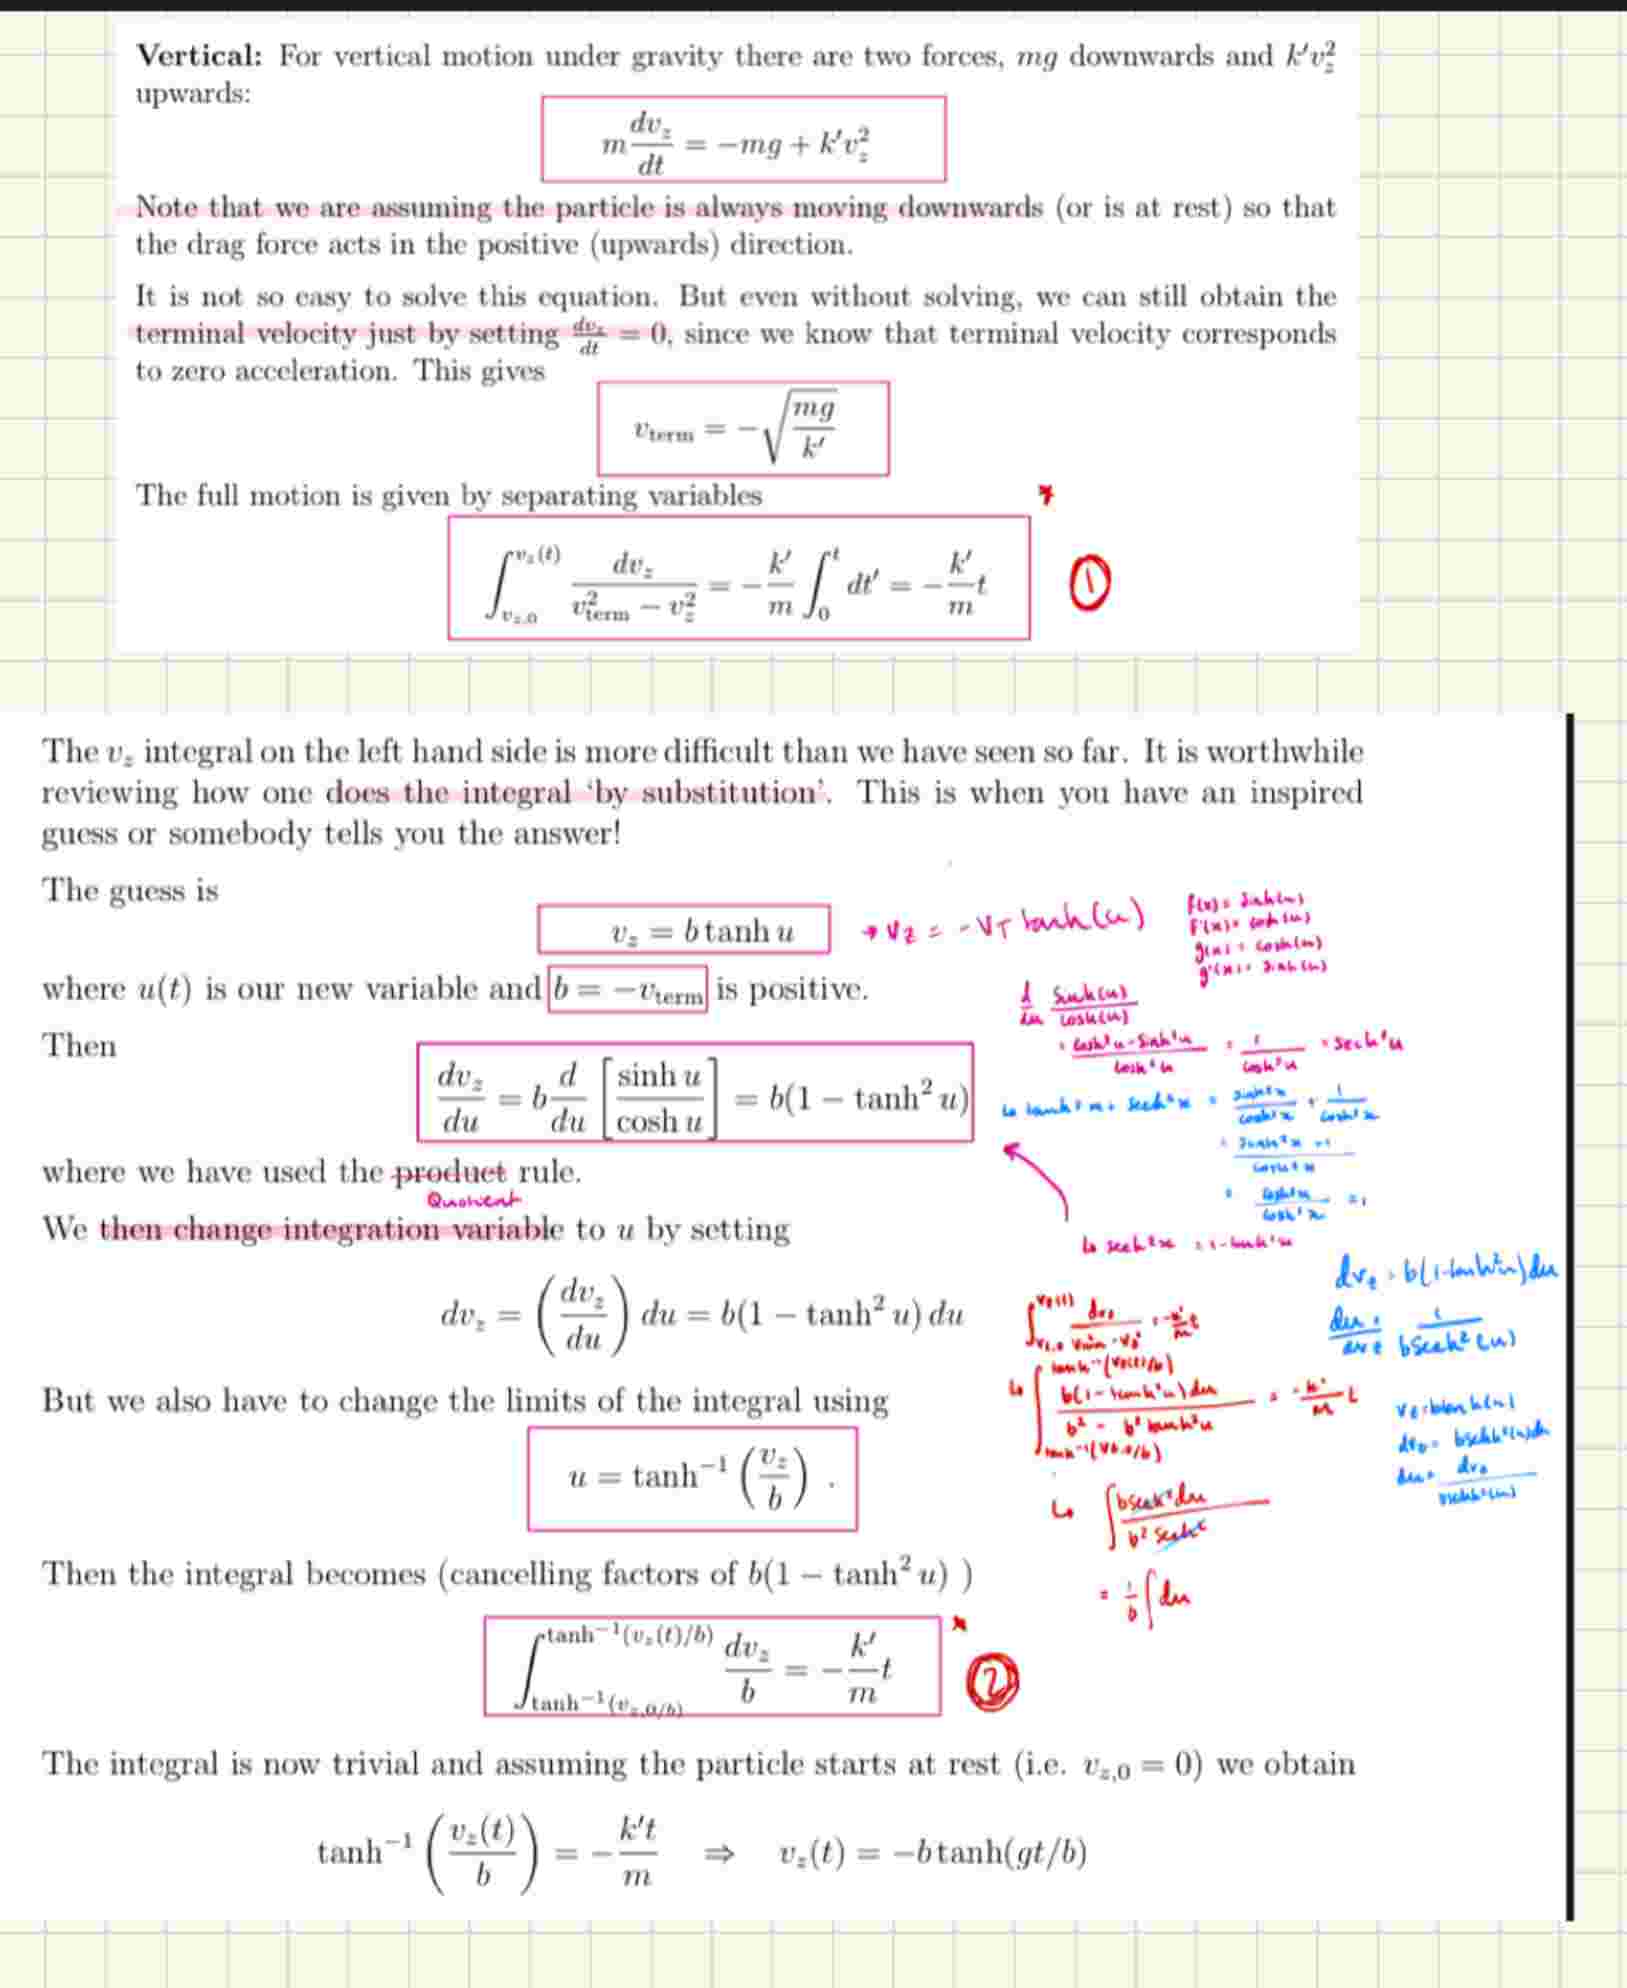 Vertical: For vertical motion under gravity there are two forces, mg downwards and k′v_z^2
upwards:
m dv_z/dt = −mg + k′v_z^2
Note that we are assuming the particle is always moving downwards (or is at rest) so that
the drag force acts in the positive (upwards) direction.
It is not so easy to solve this equation. But even without solving, we can still obtain the
terminal velocity just by setting dv_z/dt = 0, since we know that terminal velocity corresponds
to zero acceleration. This gives
v_term = −√(mg/k′)
The full motion is given by separating variables
∫_{v_z,0}^{v_z(t)} dv_z/(v_term^2 − v_z^2) = −k′/m ∫_0^t dt′ = −k′/m t
①
The v_z integral on the left hand side is more difficult than we have seen so far. It is worthwhile
reviewing how one does the integral ‘by substitution’. This is when you have an inspired
guess or somebody tells you the answer!
The guess is
v_z = b tanh u
→ v_z = -v_T tanh(u)
f(x) = sinh(u)
f'(x) = cosh(u)
g(x) = cosh(u)
g'(x) = sinh(u)
where u(t) is our new variable and b = −v_term is positive.
d/du sinh(u)/cosh(u)
= (cosh²u - sinh²u)/cosh²u = 1/cosh²u = sech²u
Then
dv_z/du = b d/du [sinh u/cosh u] = b(1 − tanh² u)
↳ tanh²x + sech²x = sinh²x/cosh²x + 1/cosh²x
= (sinh²x + 1)/cosh²x
= cosh²x/cosh²x = 1
↳ sech²x = 1 - tanh²x
where we have used the product rule.
Quotient
We then change integration variable to u by setting
dv_z = (dv_z/du) du = b(1 − tanh² u) du
dv_z = b(1-tanh²u)du
du/dv_z = 1/(b sech²(u))
∫_{v_z,0}^{v_z(t)} dv_z/(v_term² - v_z²) = -k'/m t
↳ ∫_{tanh⁻¹(v_z,0/b)}^{tanh⁻¹(v_z(t)/b)} b(1-tanh²u)du/(b² - b²tanh²u) = -k'/m t
v_z = b tanh(u)
dv_z = b sech²(u)du
du = dv_z/(b sech²(u))
But we also have to change the limits of the integral using
u = tanh⁻¹(v_z/b) .
↳ ∫ b sech² du/(b² sech²)
= 1/b ∫ du
Then the integral becomes (cancelling factors of b(1 − tanh² u) )
∫_{tanh⁻¹(v_z,0/b)}^{tanh⁻¹(v_z(t)/b)} dv_z/b = −k′/m t
②
The integral is now trivial and assuming the particle starts at rest (i.e. v_z,0 = 0) we obtain
tanh⁻¹(v_z(t)/b) = −k′t/m ⇒ v_z(t) = −b tanh(gt/b)